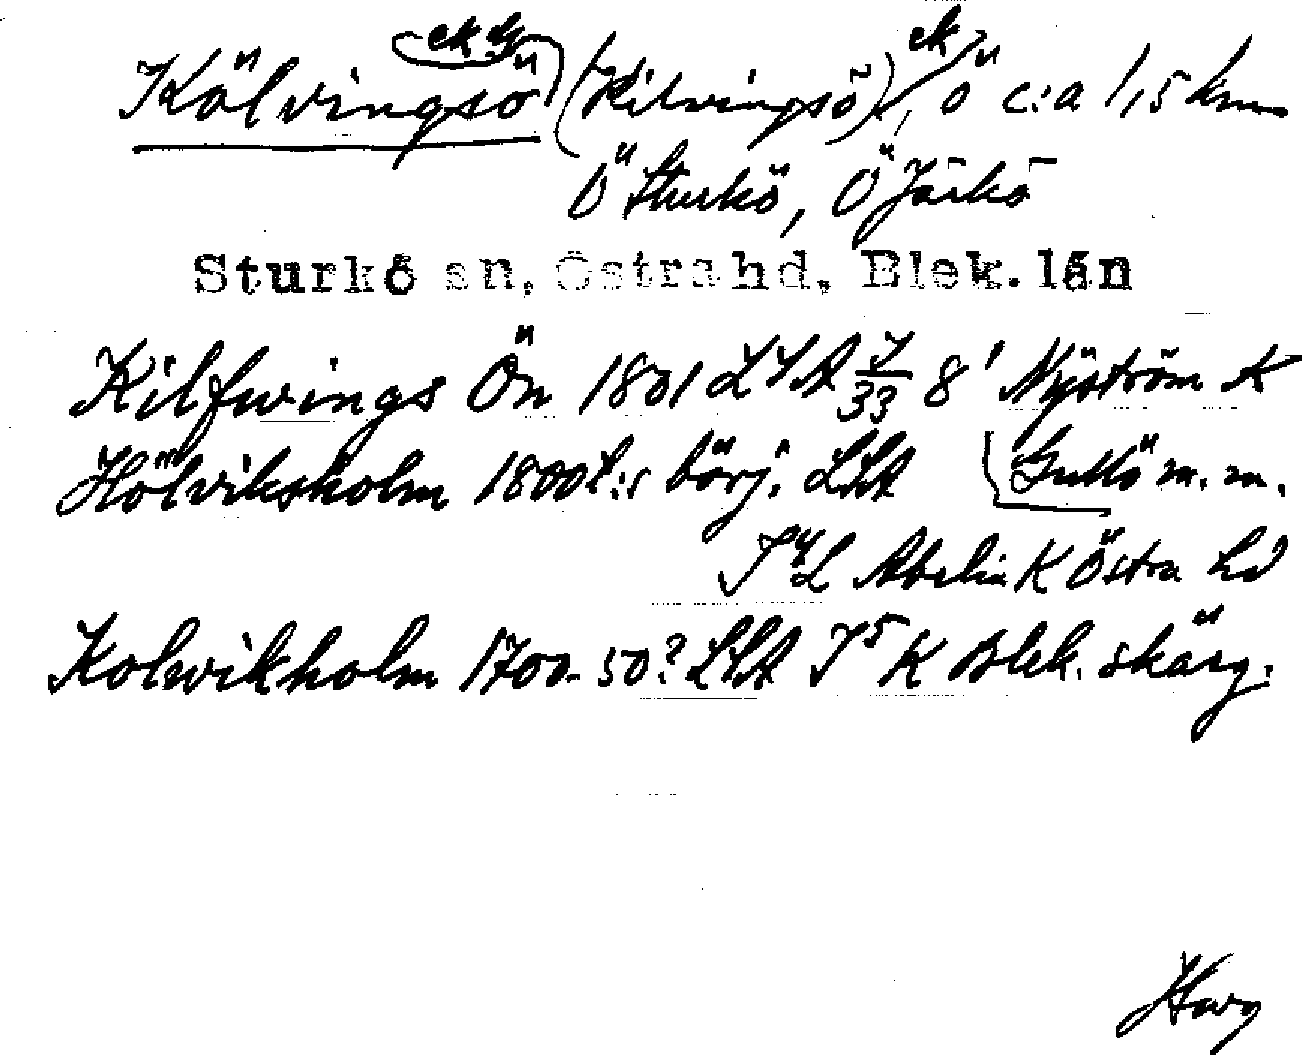 ek G ek
Kölvingsö (Kilvingsö), ö c:a 1,5 km
Ö Sturkö, Ö Järkö
Sturkö sn, Östra hd, Blek. län
Kilfwings Ön 1801 LSA J/33 8' Nyström K
Hölviksholm 1800t:s börj. LSA Gullö m.m.
K Östra hd
Kolwikholm 1700-50? LSA J5 K Blek. skärg.